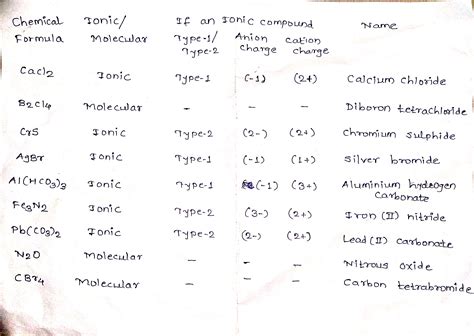 Chemical Ionic/ If an Ionic compound Name
Formula Molecular Type-1/ Anion cation
Type-2 charge charge
CaCl2 Ionic Type-1 (-1) (2+) Calcium chloride
B2Cl4 Molecular - - - Diboron tetrachloride
CrS Ionic Type-2 (2-) (2+) Chromium sulphide
AgBr Ionic Type-1 (-1) (1+) Silver bromide
Al(HCO3)3 Ionic Type-1 (-1) (3+) Aluminium hydrogen
carbonate
Fe3N2 Ionic Type-2 (3-) (2+) Iron (II) nitride
Pb(CO3)2 Ionic Type-2 (2-) (2+) Lead (II) carbonate
N2O Molecular - - - Nitrous oxide
CBr4 Molecular - - - Carbon tetrabromide